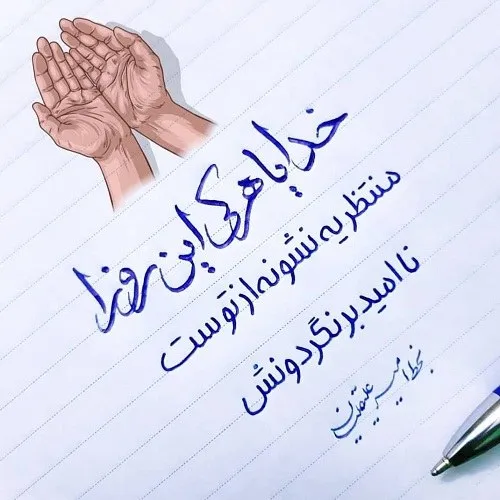 خدایا هر کی این روزا
منتظر یه نشونه از توست
ناامید برنگردونش
بخط امیر